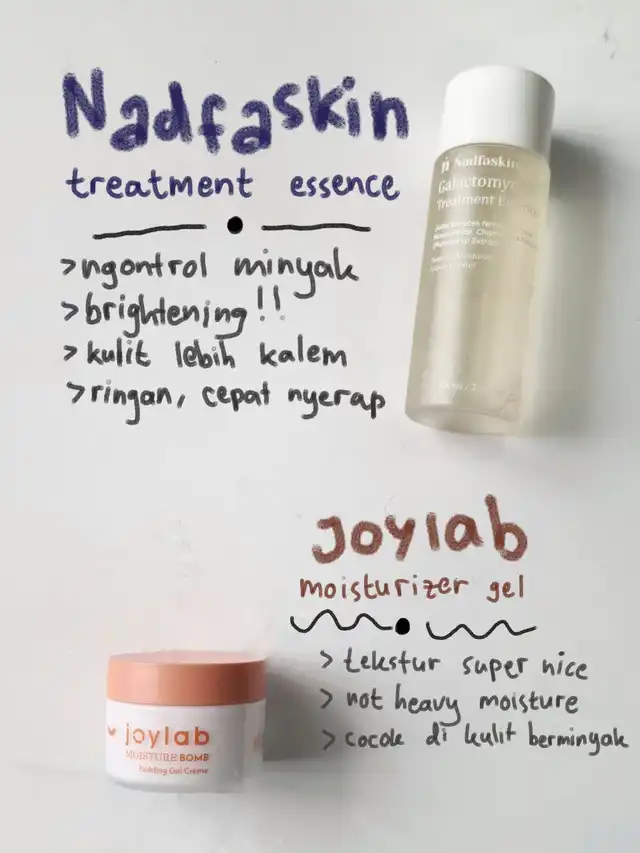 Nadfaskin
treatment essence
>ngontrol minyak
>brightening!!
>kulit lebih kalem
>ringan, cepat nyerap
Nadfaskin
Galactomy
Treatment Es
joylab
moisturizer gel
>tekstur super nice
>not heavy moisture
>cocok di kulit berminyak
joylab
MOISTURE BOMB
Pudding Gel Creme